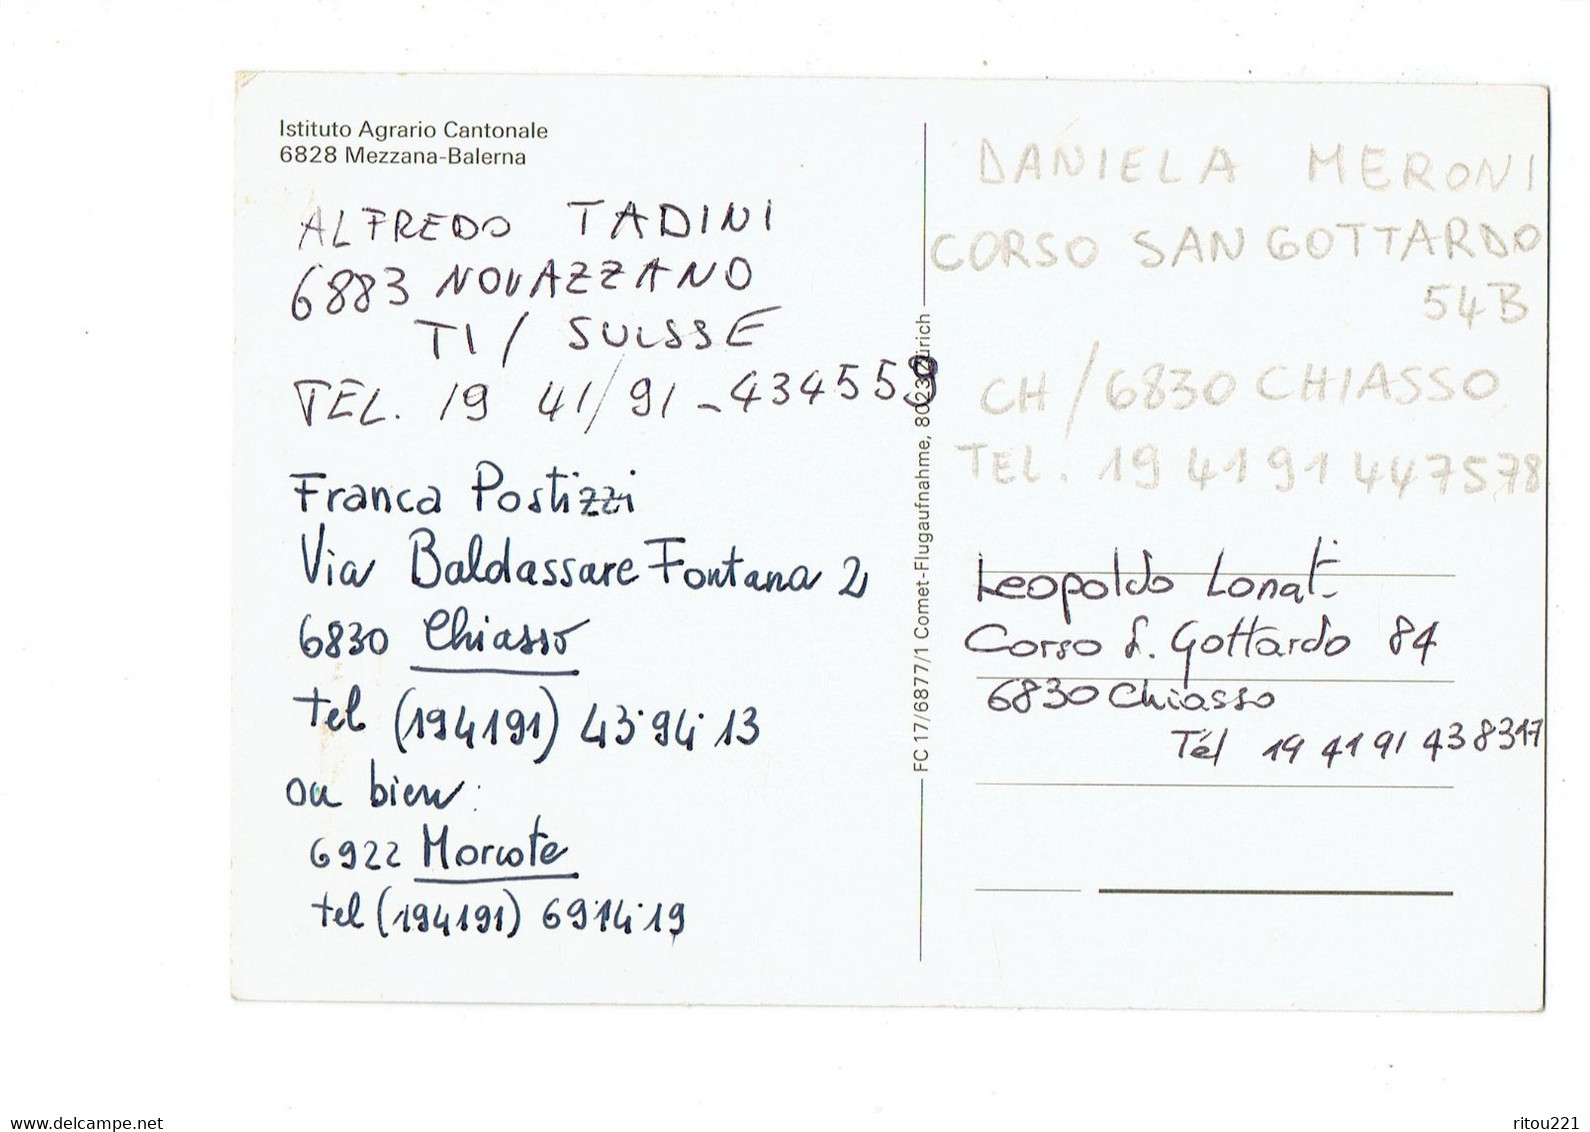 Istituto Agrario Cantonale
6828 Mezzana-Balerna
ALFREDO TADINI
6883 NOVAZZANO
TI / SUISSE
TEL. 19 41/91-434559
Franca Postizzi
Via Baldassare Fontana 2
6830 Chiasso
tel (194191) 43·94·13
ou bien:
6922 Morcote
tel (194191) 69·14·19
FC 17/6877/1 Comet-Flugaufnahme, 8023 Zürich
DANIELA MERONI
CORSO SAN GOTTARDO
54B
CH / 6830 CHIASSO
TEL. 19 41 91 447578
Leopoldo Lonati
Corso S. Gottardo 84
6830 Chiasso
Tél 19 41 91 438317
www.delcampe.net
ritou221